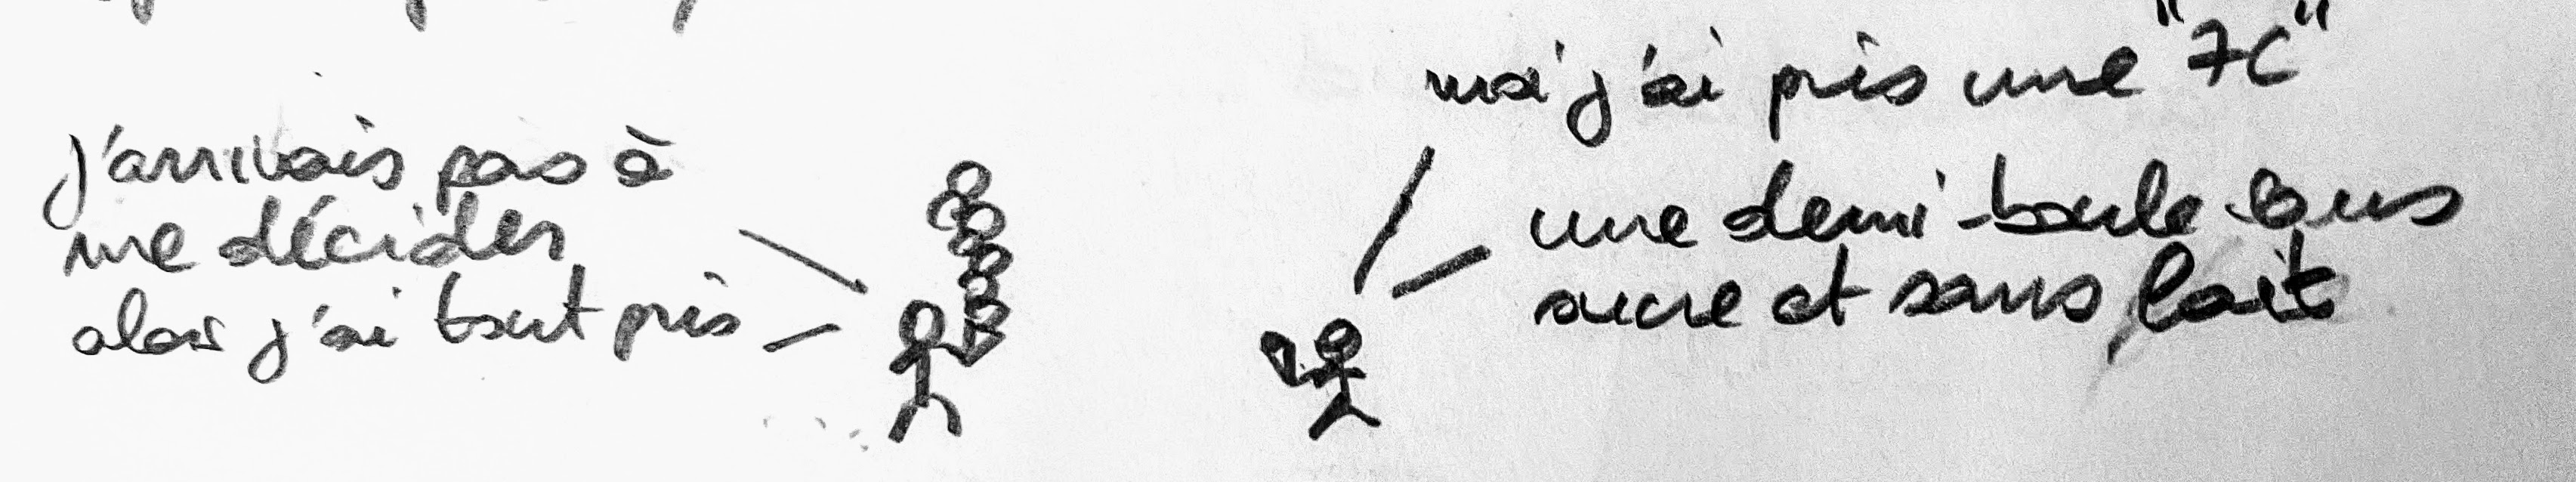 j'arrivais pas à
me décider
alors j'ai tout pris
moi j'ai pris une "7C"
une demi-boule sans
sucre et sans lait